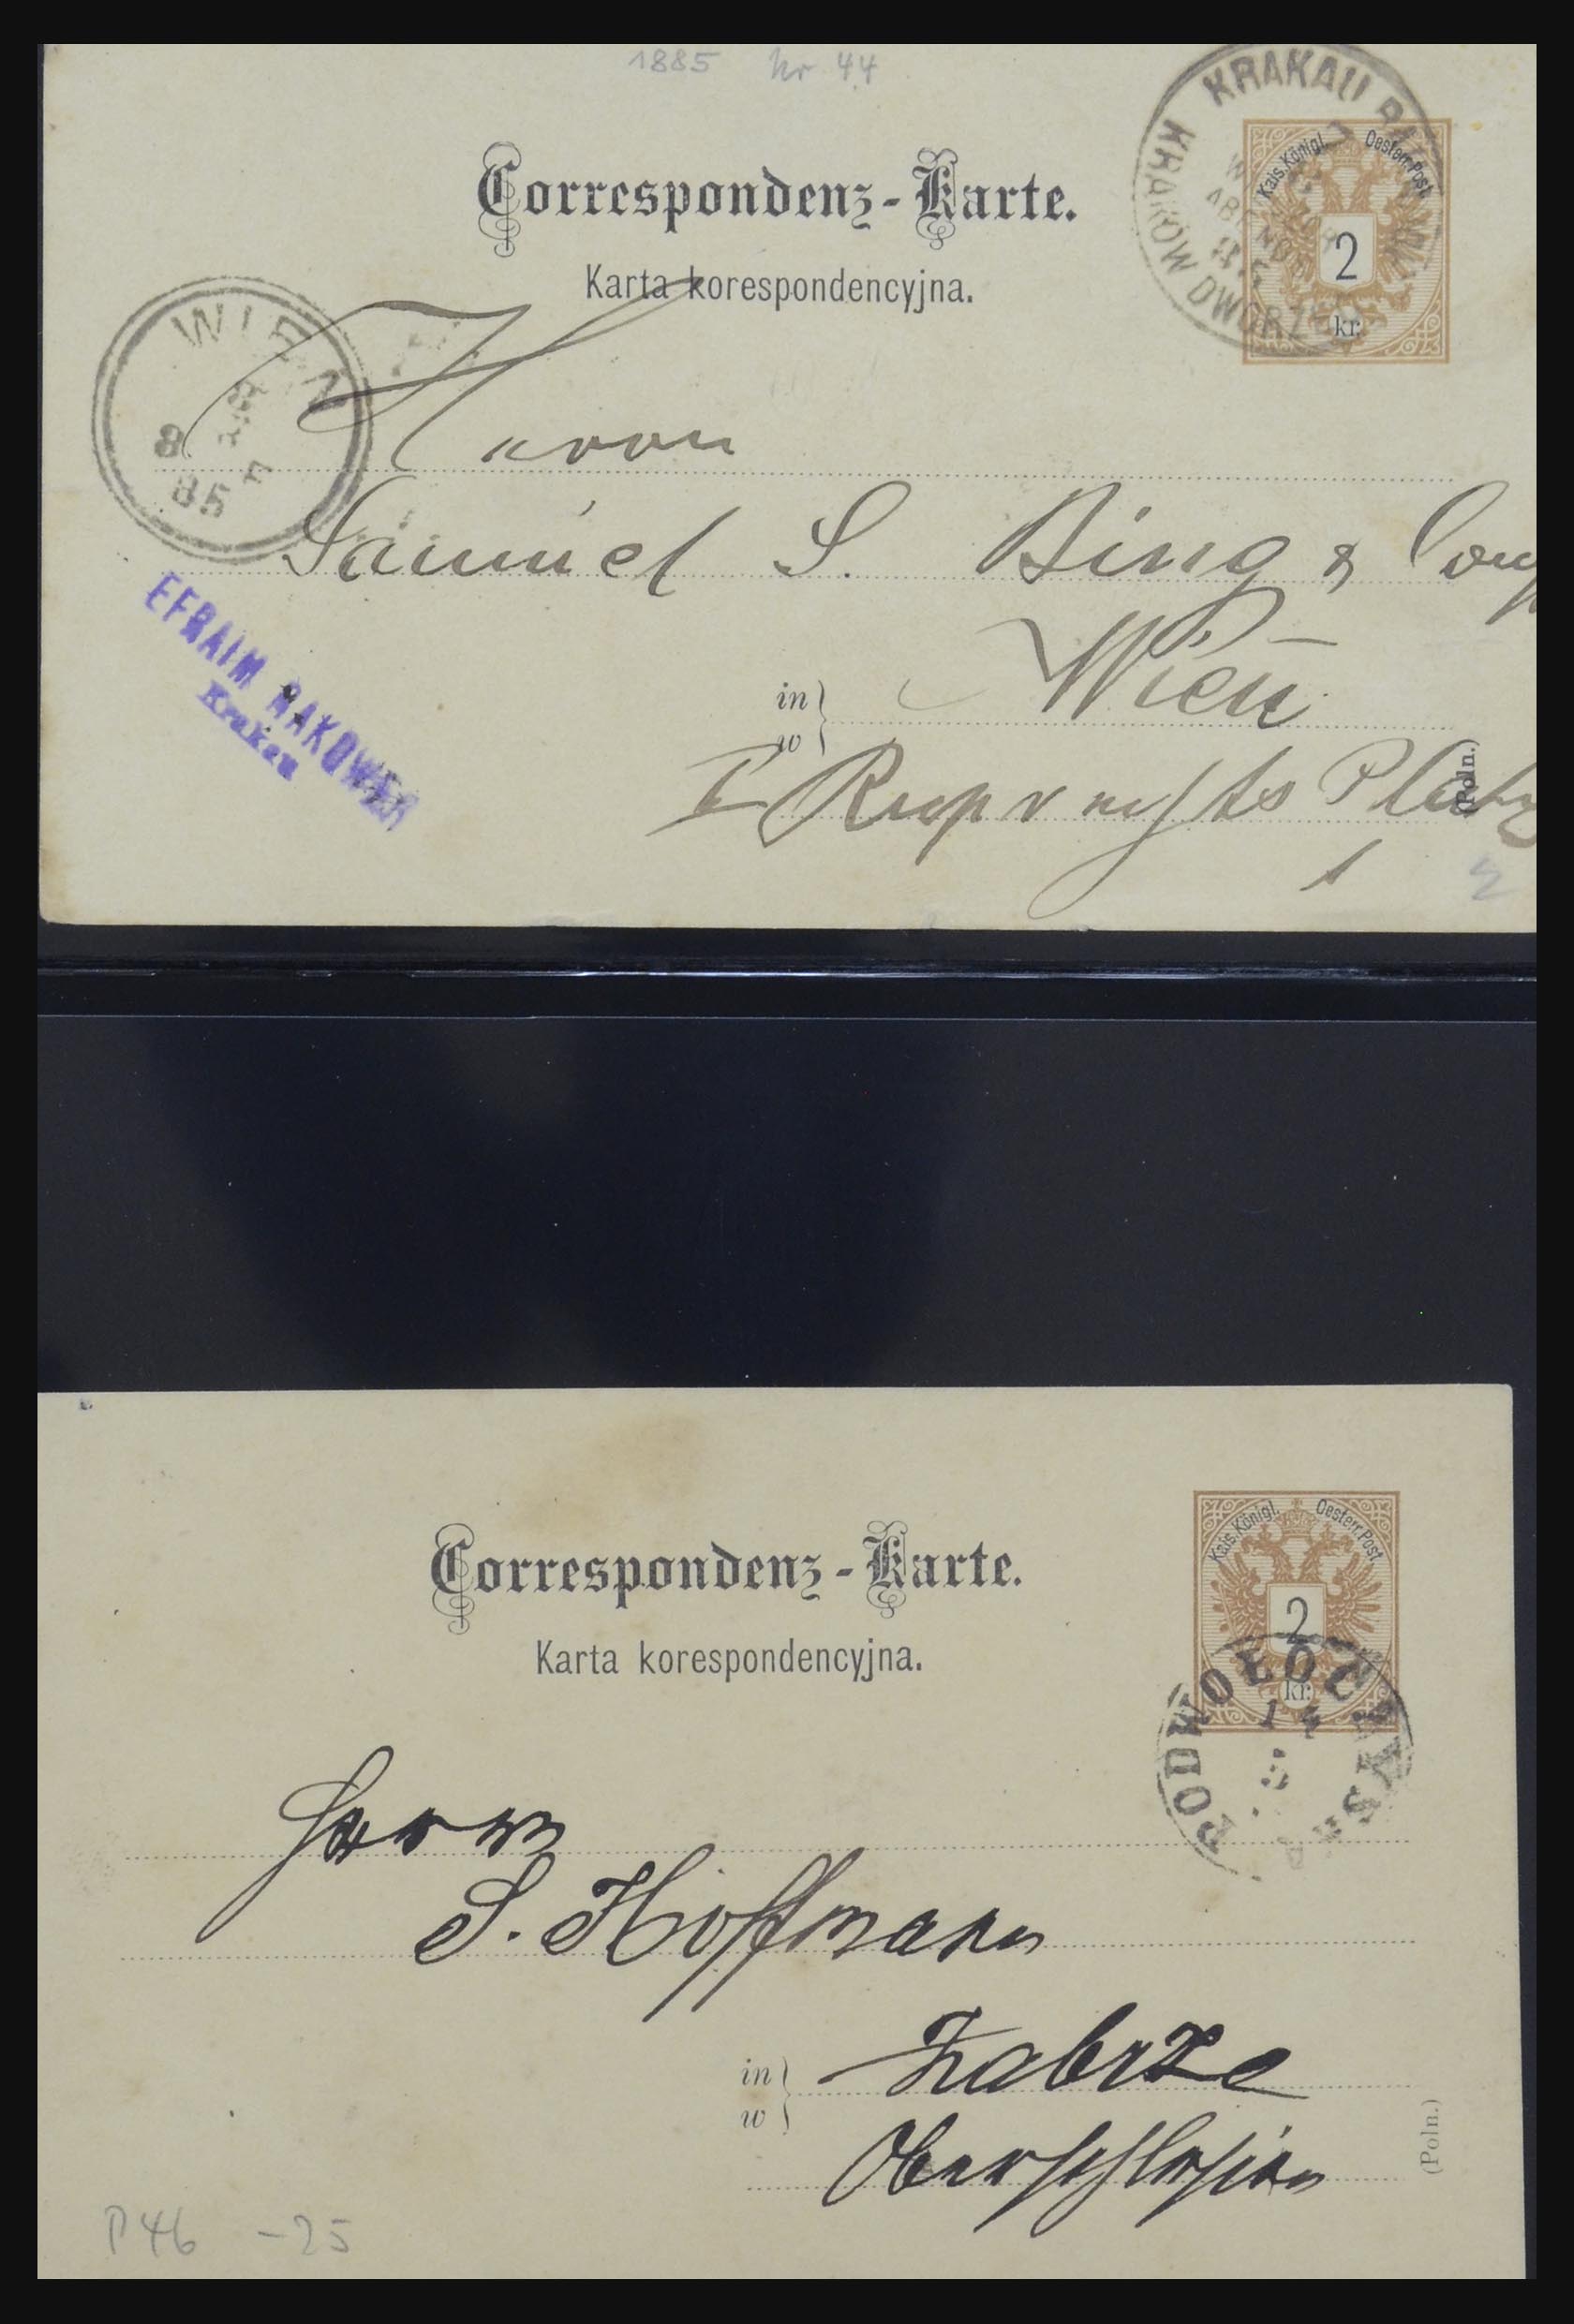 1885 Nr 44
KRAKAU
KRAKÓW DWORZEC
Kais. Königl. Oesterr. Post
2
kr.
Correspondenz-Karte.
Karta korespondencyjna.
WIEN
8 8
85
Herrn
Samuel S. Bing & Comp
in
w
Wien
I Ruprechts Platz
1
(Poln.)
EFRAIM RAKOWER
Krakau
2
Kais. Königl. Oesterr. Post
2
kr.
Correspondenz-Karte.
Karta korespondencyjna.
PODWOŁOCZYSKA
14
5
Herrn
S. Hoffmann
in
w
Zabrze
Oberschlesien
(Poln.)
P46 -25